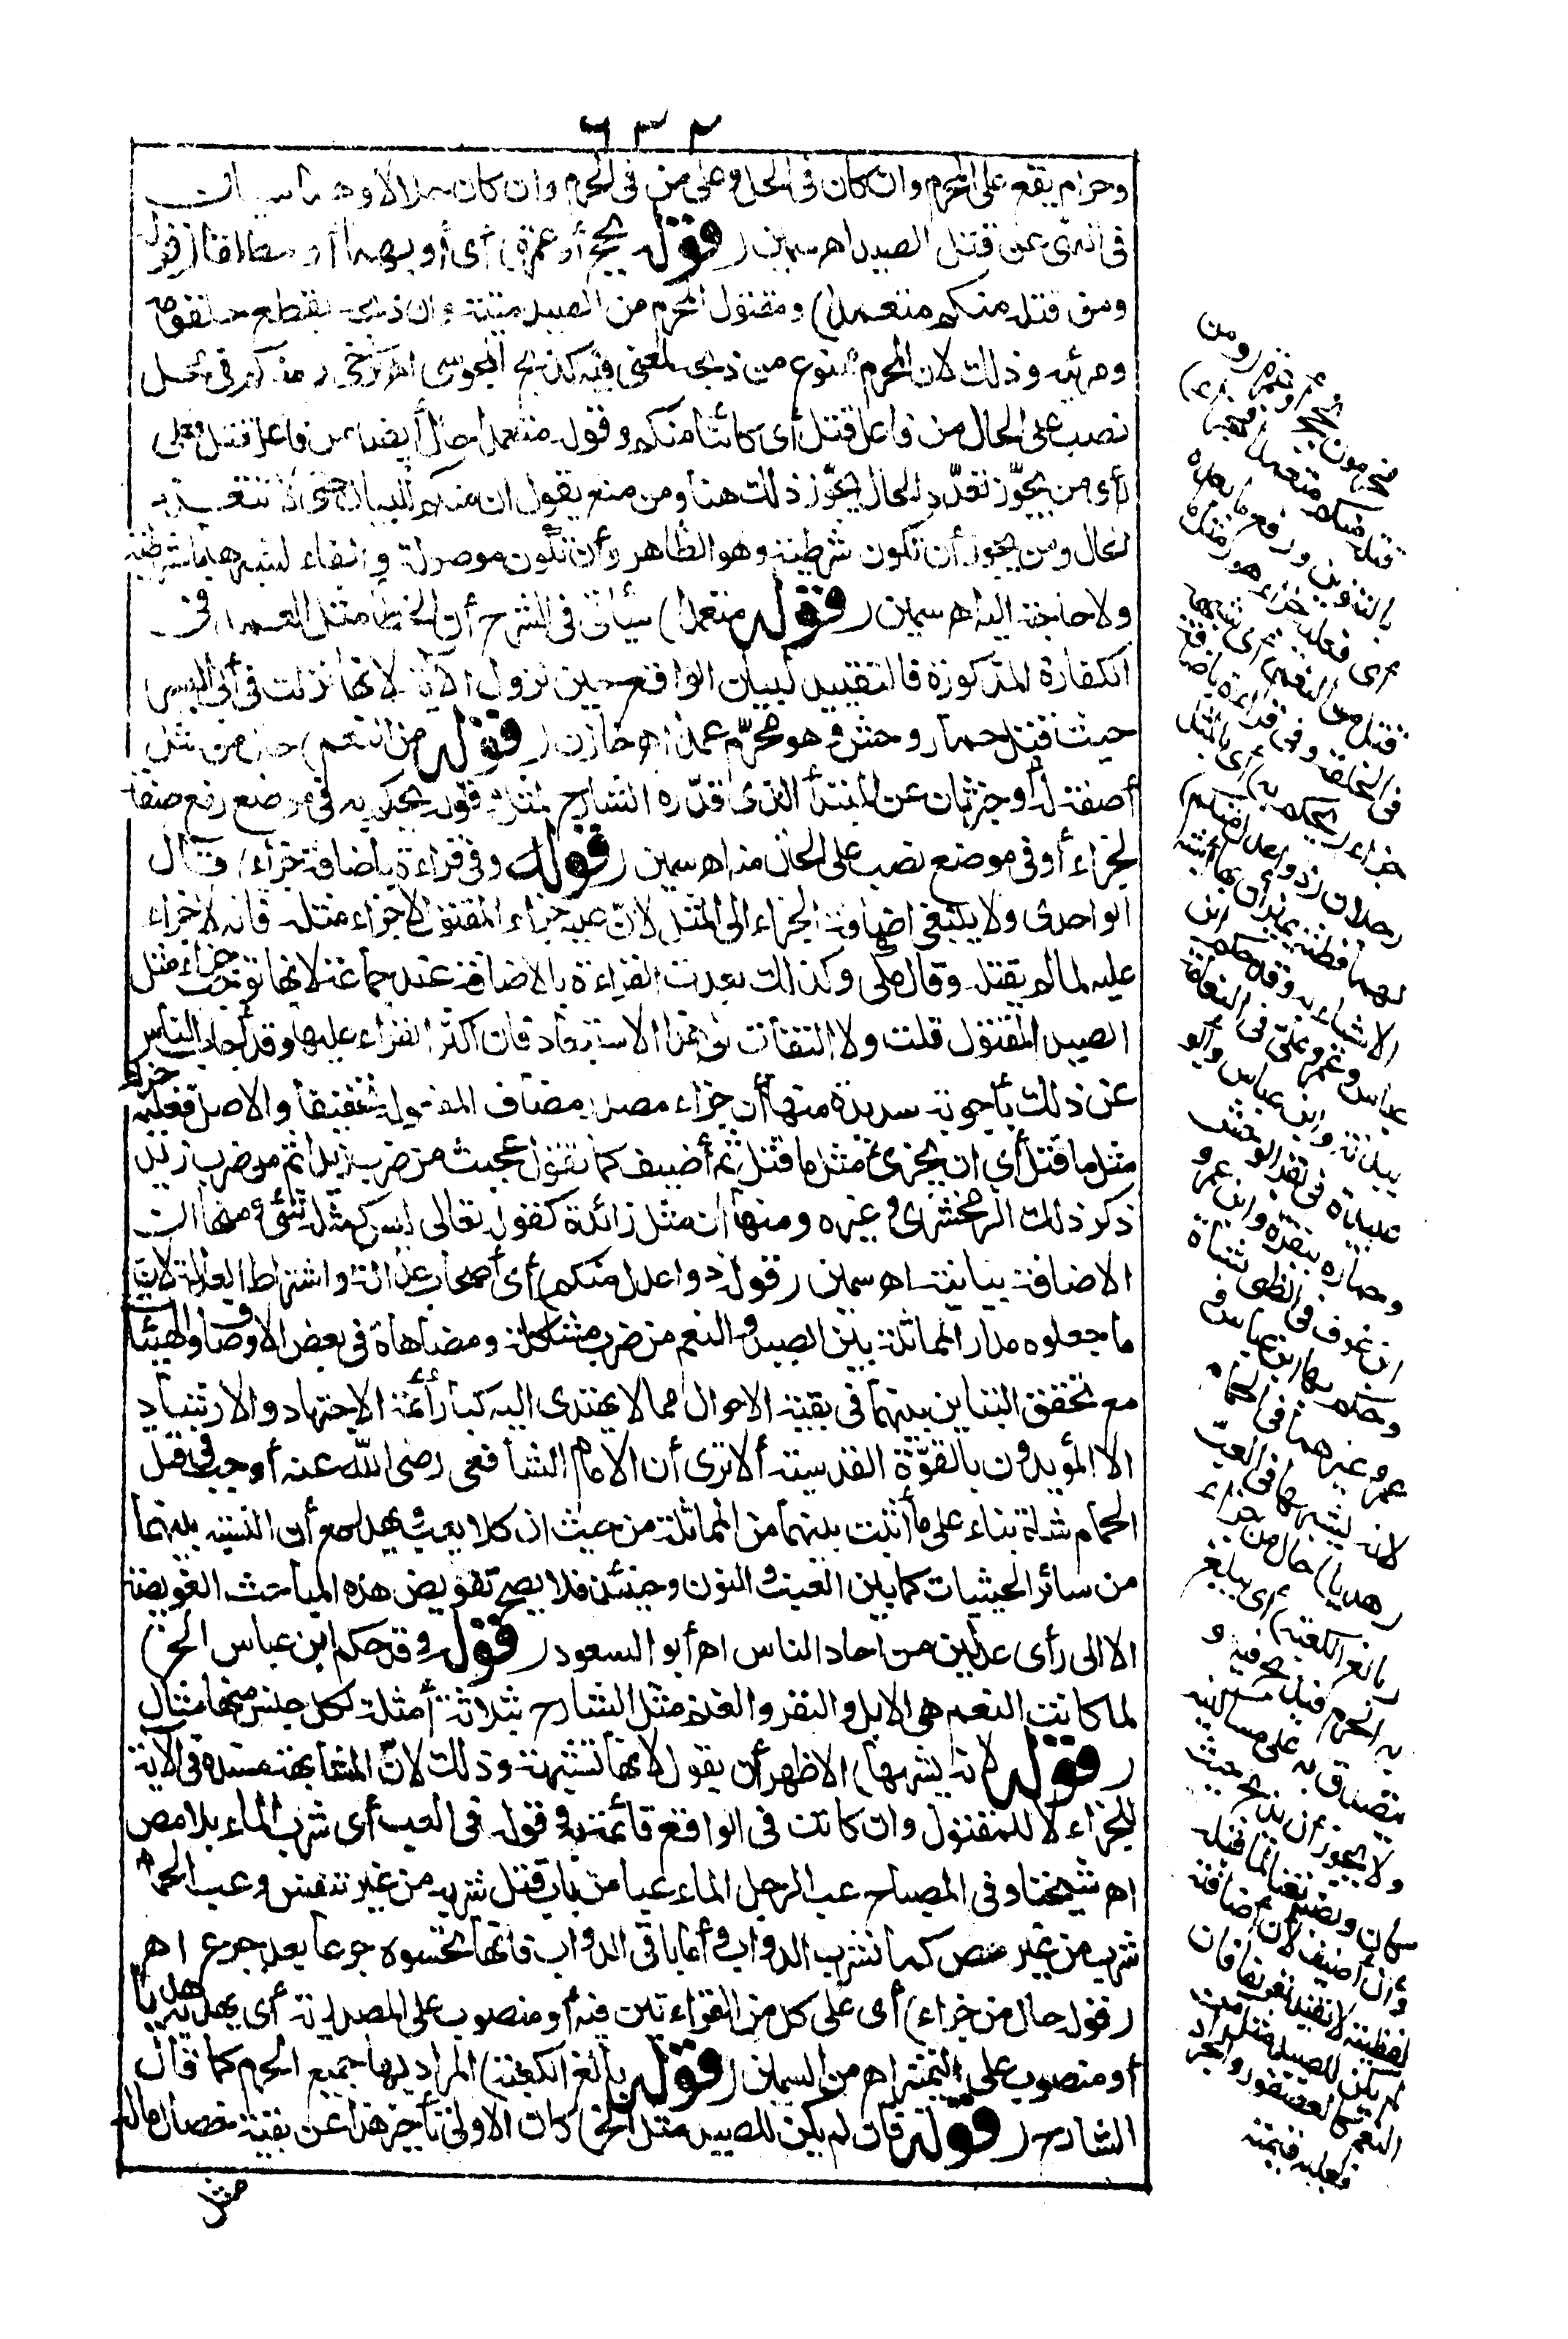 ٦٣٢
وحرام يقع على المحرم وان كان فى الحل وعلى من فى الحرم وان كان حلالا وهما سيان
فى النهى عن قتل الصيد اه سمين (قوله بحج أو عمرة) أى أو بهما أو مطلقا (قوله
ومن قتله منكم متعمدا) ومقتول المحرم من الصيد ميتة وان ذبحه بقطع حلقومه
ومريئه وذلك لان المحرم ممنوع من ذبحه لمعنى فيه كذبح المجوسى اه كرخى ومنكم فى محل
نصب على الحال من فاعل قتل أى كائنا منكم وقوله متعمدا حال أيضا من فاعل قتل فعلى
رأى من يجوّز تعدّد الحال يجوّز ذلك هنا ومن منع يقول ان منكم للبيان حتى لا تتعدد
الحال ومن يجوز أن تكون شرطية وهو الظاهر وأن تكون موصولة والفاء لشبهها بالشرطية
ولا حاجة اليه اه سمين (قوله متعمدا) سيأتى فى الشرح أن الخطأ مثل العمد فى
الكفارة المذكورة فالتقييد لبيان الواقع حين نزول الآية لانها نزلت فى أبى اليسر
حيث قتل حمار وحش وهو محرّم عمدا اه خازن (قوله من النعم) حال من مثل
أو صفة له أو خبر ثان عن المبتدأ الذى قدّره الشارح لمثل وقوله يحكم به فى موضع رفع صفة
لجزاء أو فى موضع نصب على الحال منه اه سمين (قوله وفى قراءة باضافة جزاء) قال
الواحدى ولا ينبغى اضافة الجزاء الى المثل لانّ عليه جزاء المقتول لا جزاء مثله فانه لا جزاء
عليه لما لم يقتله وقال مكى وكذلك بعدت القراءة بالاضافة عند جماعة لانها توجب جزاء مثل
الصيد المقتول قلت ولا التفات الى هذا الاستبعاد فان أكثر القراء عليها وقد أجاب الناس
عن ذلك بأجوبة سديدة منها أن جزاء مصدر مضاف المفعوله تخفيفا والاصل فعليه جزاء
مثل ما قتل أى ان يجزئ مثل ما قتل ثم أضيف كما تقول عجبت من ضرب زيدا ثم من ضرب زيد
ذكر ذلك الزمخشرى وغيره ومنها ان مثل زائدة كقوله تعالى ليس كمثله شئ ومنها ان
الاضافة بيانية اه سمين (قوله ذوا عدل منكم) أى أصحاب عدالة واشتراط العدالة لان
ما جعلوه مدار المماثلة بين الصيد والنعم من ضرب مشاكلة ومضاهاة فى بعض الاوصاف والهيئات
مع تحقق التباين بينهما فى بقية الاحوال مما لا يهتدى اليه كبار أئمة الاجتهاد والارشاد
الا المؤيدون بالقوّة القدسية ألا ترى أن الامام الشافعى رضى الله عنه أوجب فى قتل
الحمام شاة بناء على ما أثبت بينهما من المماثلة من حيث ان كلا يعب ويهدر مع أن النسبة بينهما
من سائر الحيثيات كما بين الضب والنون وحينئذ فلا يصح تفويض هذه المباحث العويصة
الا الى رأى عدلين من احاد الناس اه أبو السعود (قوله وقد حكم ابن عباس الخ)
لما كانت النعم هى الابل والبقر والغنم مثل الشارح بثلاثة أمثلة لكل جنس منها مثال
(قوله لانه يشبهها) الاظهر أن يقول لانها تشبهه وذلك لانّ المشابهة مسندة فى الآية
للجزاء لا للمقتول وان كانت فى الواقع قائمة به وقوله فى العب أى شرب الماء بلا مص
اه شيخنا وفى المصباح عب الرجل الماء عبا من باب قتل شربه من غير تنفس وعب الحمام
شرب من غير مص كما تشرب الدواب وأما باقى الدواب فانها تحسوه جرعا بعد جرع اه
(قوله حال من جزاء) أى على كل من القراءتين فيه أو منصوب على المصدرية أى يهديه هديا
أو منصوب على التمييز اه من السمين (قوله بالغ الكعبة) المراد بها جميع الحرم كما قال
الشارح (قوله فان لم يكن للصيد مثل الخ) كان الاولى تأخير هذا عن بقية خصال ماله
مثل
بحج أو عمرة (ومن
قتله منكم متعمدا فجزاء)
بالتنوين ورفع ما بعده
أى فعليه جزاء هو (مثل ما
قتل من النعم) أى شبهه
فى الخلقة وفى قراءة باضافة
جزاء (يحكم به) أى بالمثل
رجلان (ذوا عدل منكم)
لهما فطنة يميزان بها أشبه
الاشياء به وقد حكم ابن
عباس وعمر وعلىّ فى النعامة
ببدنة وابن عباس وأبو
عبيدة فى بقر الوحش
وحماره ببقرة وابن عمر و
ابن عوف فى الظبى بشاة
وحكم بها ابن عباس و
عمر وغيرهما فى الحمام
لانه يشبهها فى العب
(هديا) حال من جزاء
(بالغ الكعبة) أى يبلغ
به الحرم فيذبح فيه و
يتصدق به على مساكينه
ولا يجوز أن يذبح حيث
كان ونصبه نعتا لما قبله
وان أضيف لان اضافته
لفظية لا تفيد تعريفا فان
لم يكن للصيد مثل من
النعم كالعصفور والجراد
فعليه قيمته